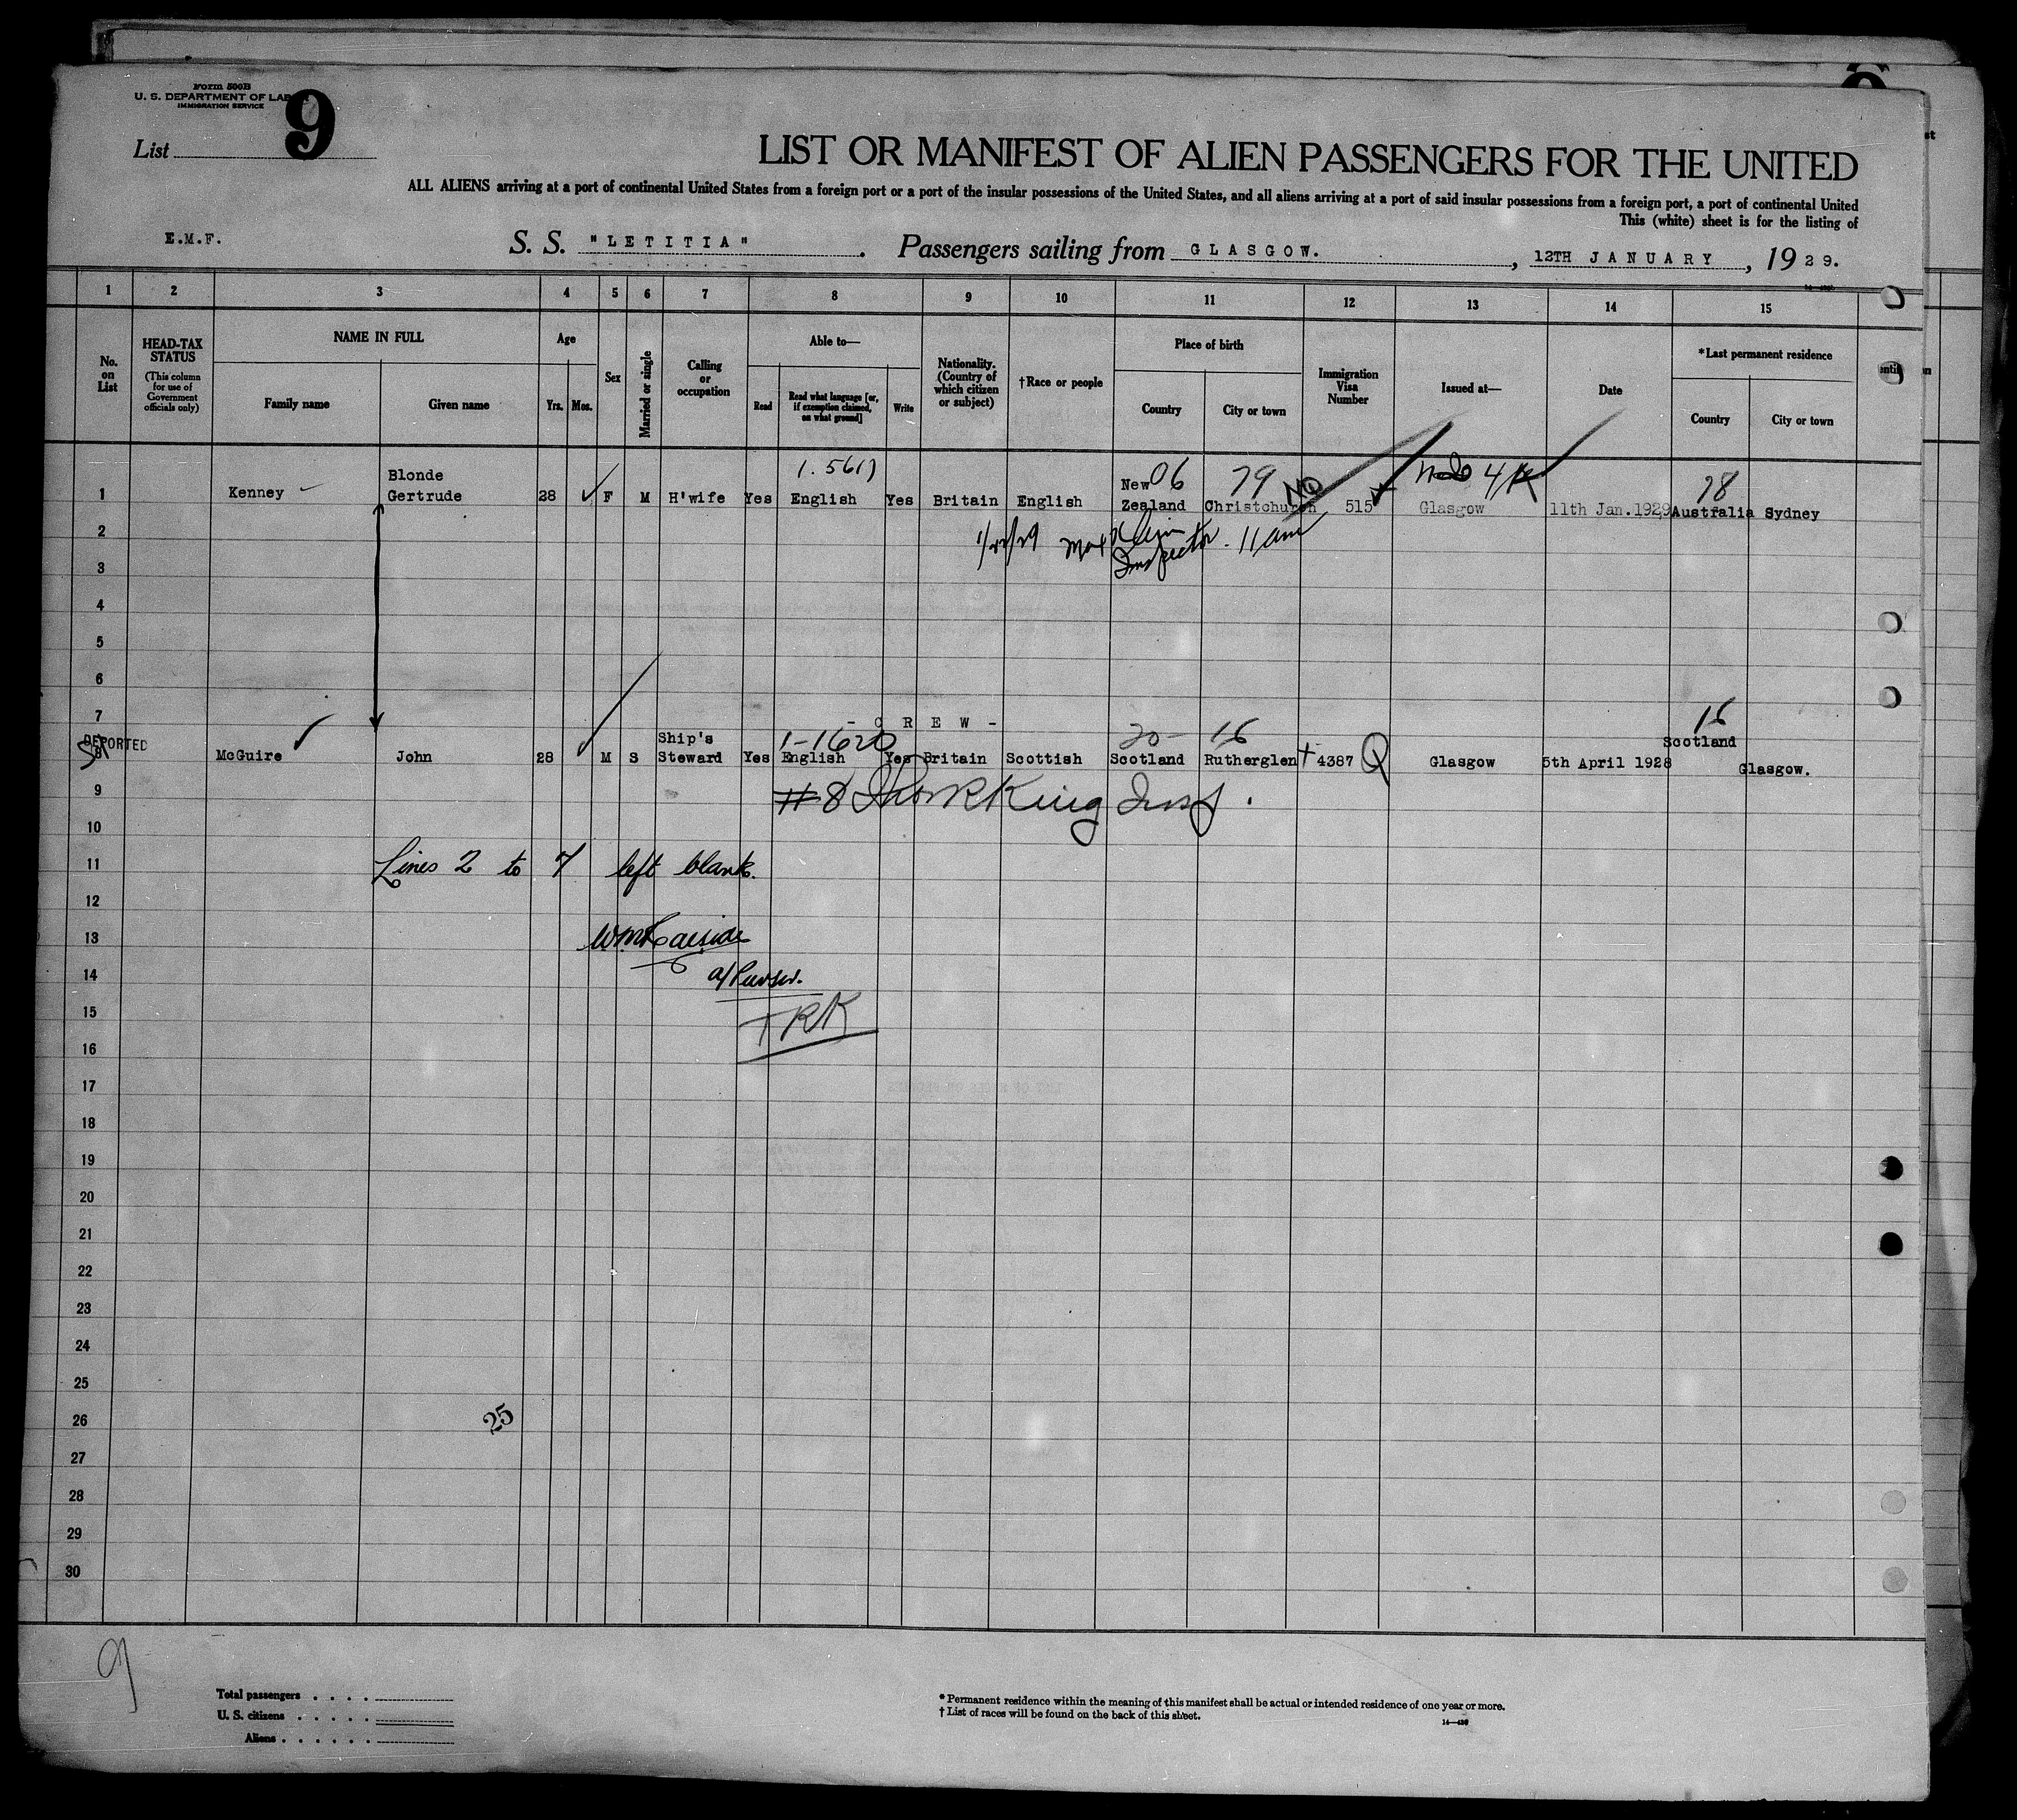 Form 500B
U. S. DEPARTMENT OF LABOR
IMMIGRATION SERVICE
List 9
LIST OR MANIFEST OF ALIEN PASSENGERS FOR THE UNITED
ALL ALIENS arriving at a port of continental United States from a foreign port or a port of the insular possessions of the United States, and all aliens arriving at a port of said insular possessions from a foreign port, a port of continental United
This (white) sheet is for the listing of
E.M.F.
S. S. "LETITIA". Passengers sailing from GLASGOW., 12TH JANUARY, 1929.
1 2 3 4 5 6 7 8 9 10 11 12 13 14 15
No. on List
HEAD-TAX STATUS
(This column for use of Government officials only)
NAME IN FULL
Family name Given name
Age
Yrs. Mos.
Sex
Married or single
Calling or occupation
Able to—
Read
Read what language [or, if exemption claimed, on what ground]
Write
Nationality. (Country of which citizen or subject)
†Race or people
Place of birth
Country City or town
Immigration Visa Number
Issued at—
Date
*Last permanent residence
Country City or town
1 Kenney Blonde Gertrude 28 F M H'wife Yes English Yes Britain English New Zealand Christchurch 515 Glasgow 11th Jan. 1929 Australia Sydney
06 79 NO 78
2 1/22/29 Inspector. 11 am
3
4
5
6
7
- CREW -
DEPORTED
8 McGuire John 28 M S Ship's Steward Yes English Yes Britain Scottish Scotland Rutherglen † 4387 Q Glasgow 5th April 1928 Scotland Glasgow.
1-1620 20- 16 16
9 #8 King Insp.
10
11 Lines 2 to 7 left blank.
12
13
14 a/Purser.
15 TRK
16
17
18
19
20
21
22
23
24
25
26 25
27
28
29
30
9
Total passengers . . . .
U. S. citizens . . . . .
Aliens . . . . . .
* Permanent residence within the meaning of this manifest shall be actual or intended residence of one year or more.
† List of races will be found on the back of this sheet.